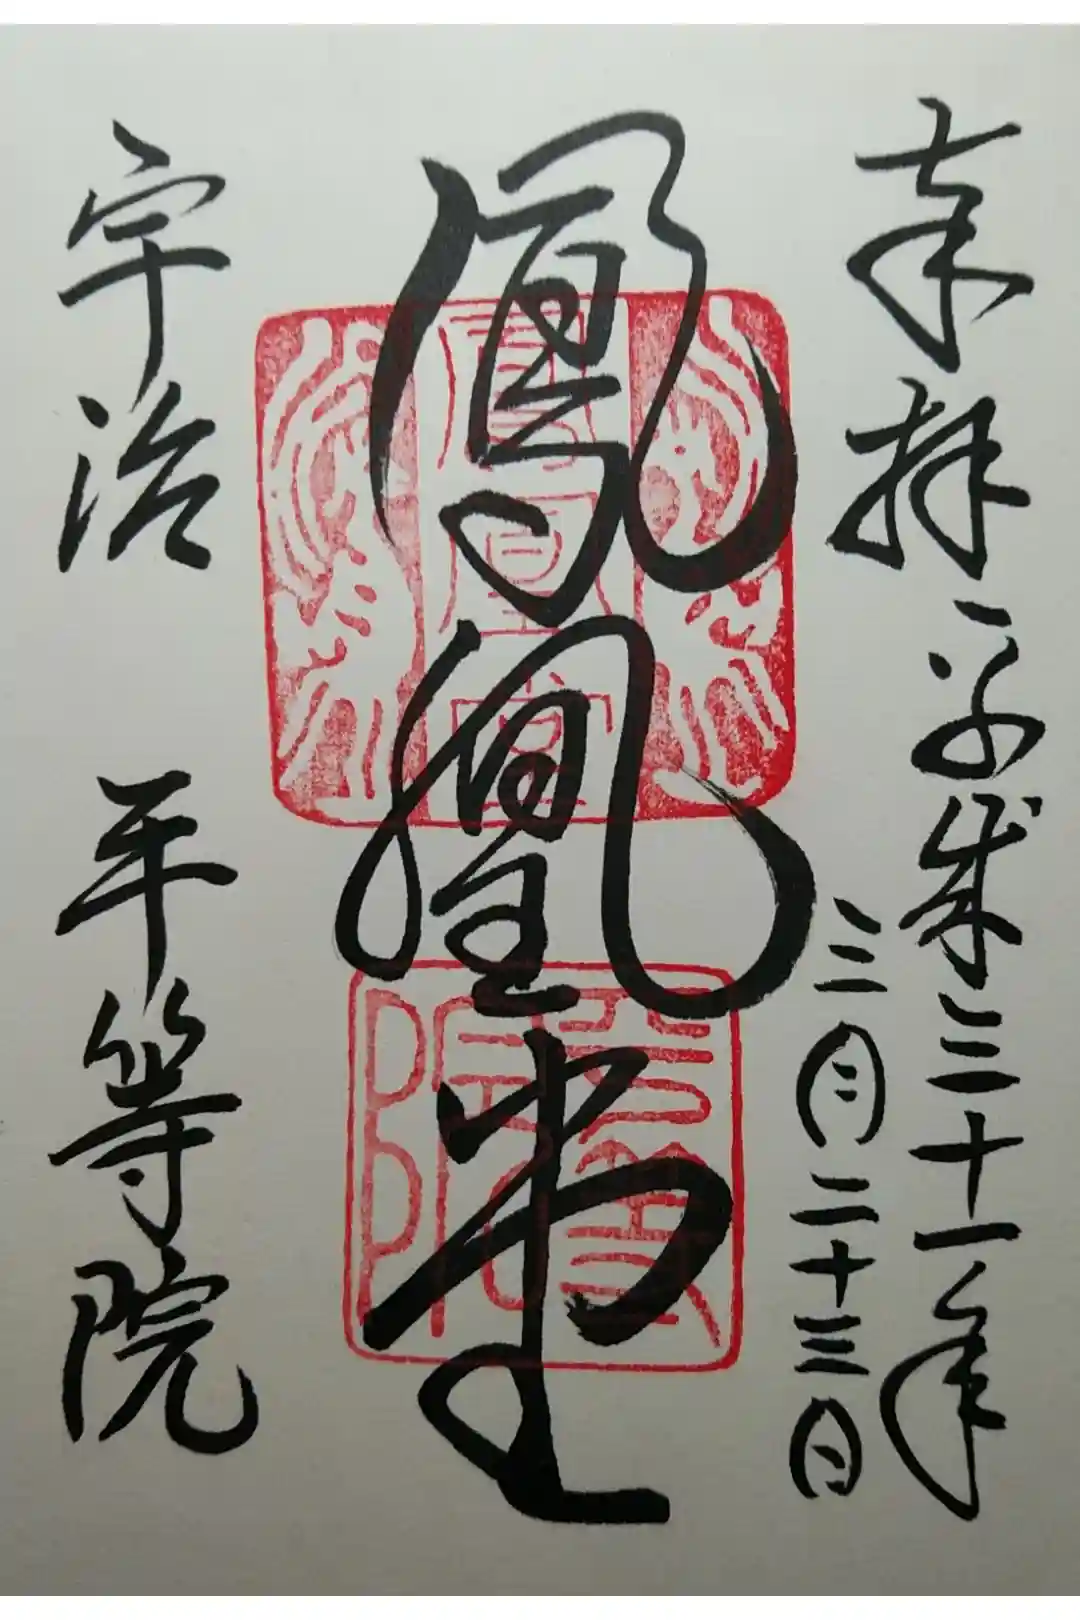 奉拝
平成三十一年
三月二十三日
鳳凰堂
宇治 平等院